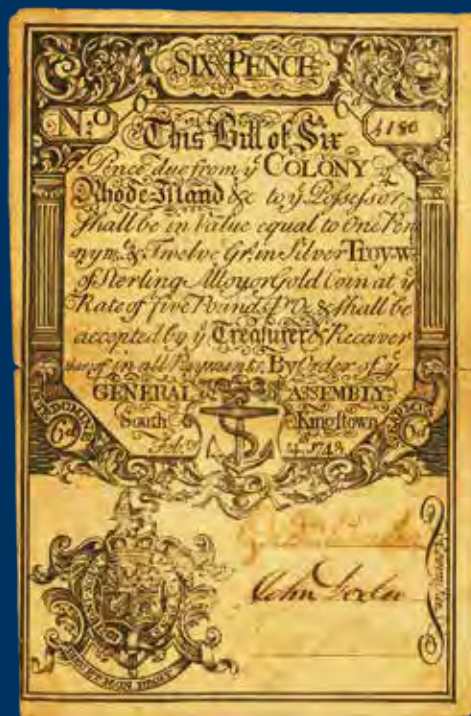 SIX PENCE
N:o 6d 6d 4186
This Bill of Six
Pence due from ye COLONY of
Rhode-Island &c to ye Possessor
Shall be in Value equal to One Pen
nywt. & Twelve Gr. in Silver TROY-Wt
of Sterling Alloy or Gold Coin at ye
Rate of five Pounds pr Oz & shall be
accepted by ye Treasurer & Receiver
in all Payments. By Order of ye
GENERAL ASSEMBLY
South Kingstown
6d 6d
Feb. 14. 1743
John